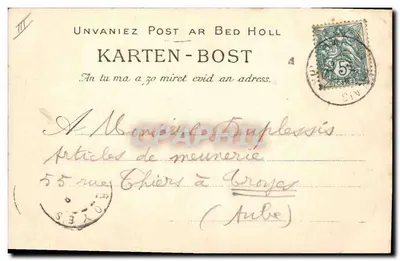 III
UNVANIEZ POST AR BED HOLL
KARTEN-BOST
An tu ma a zo miret evid an adress.
5
A
Articles de meunerie
55 rue Thiers à Troyes
(Aube)
TROYES